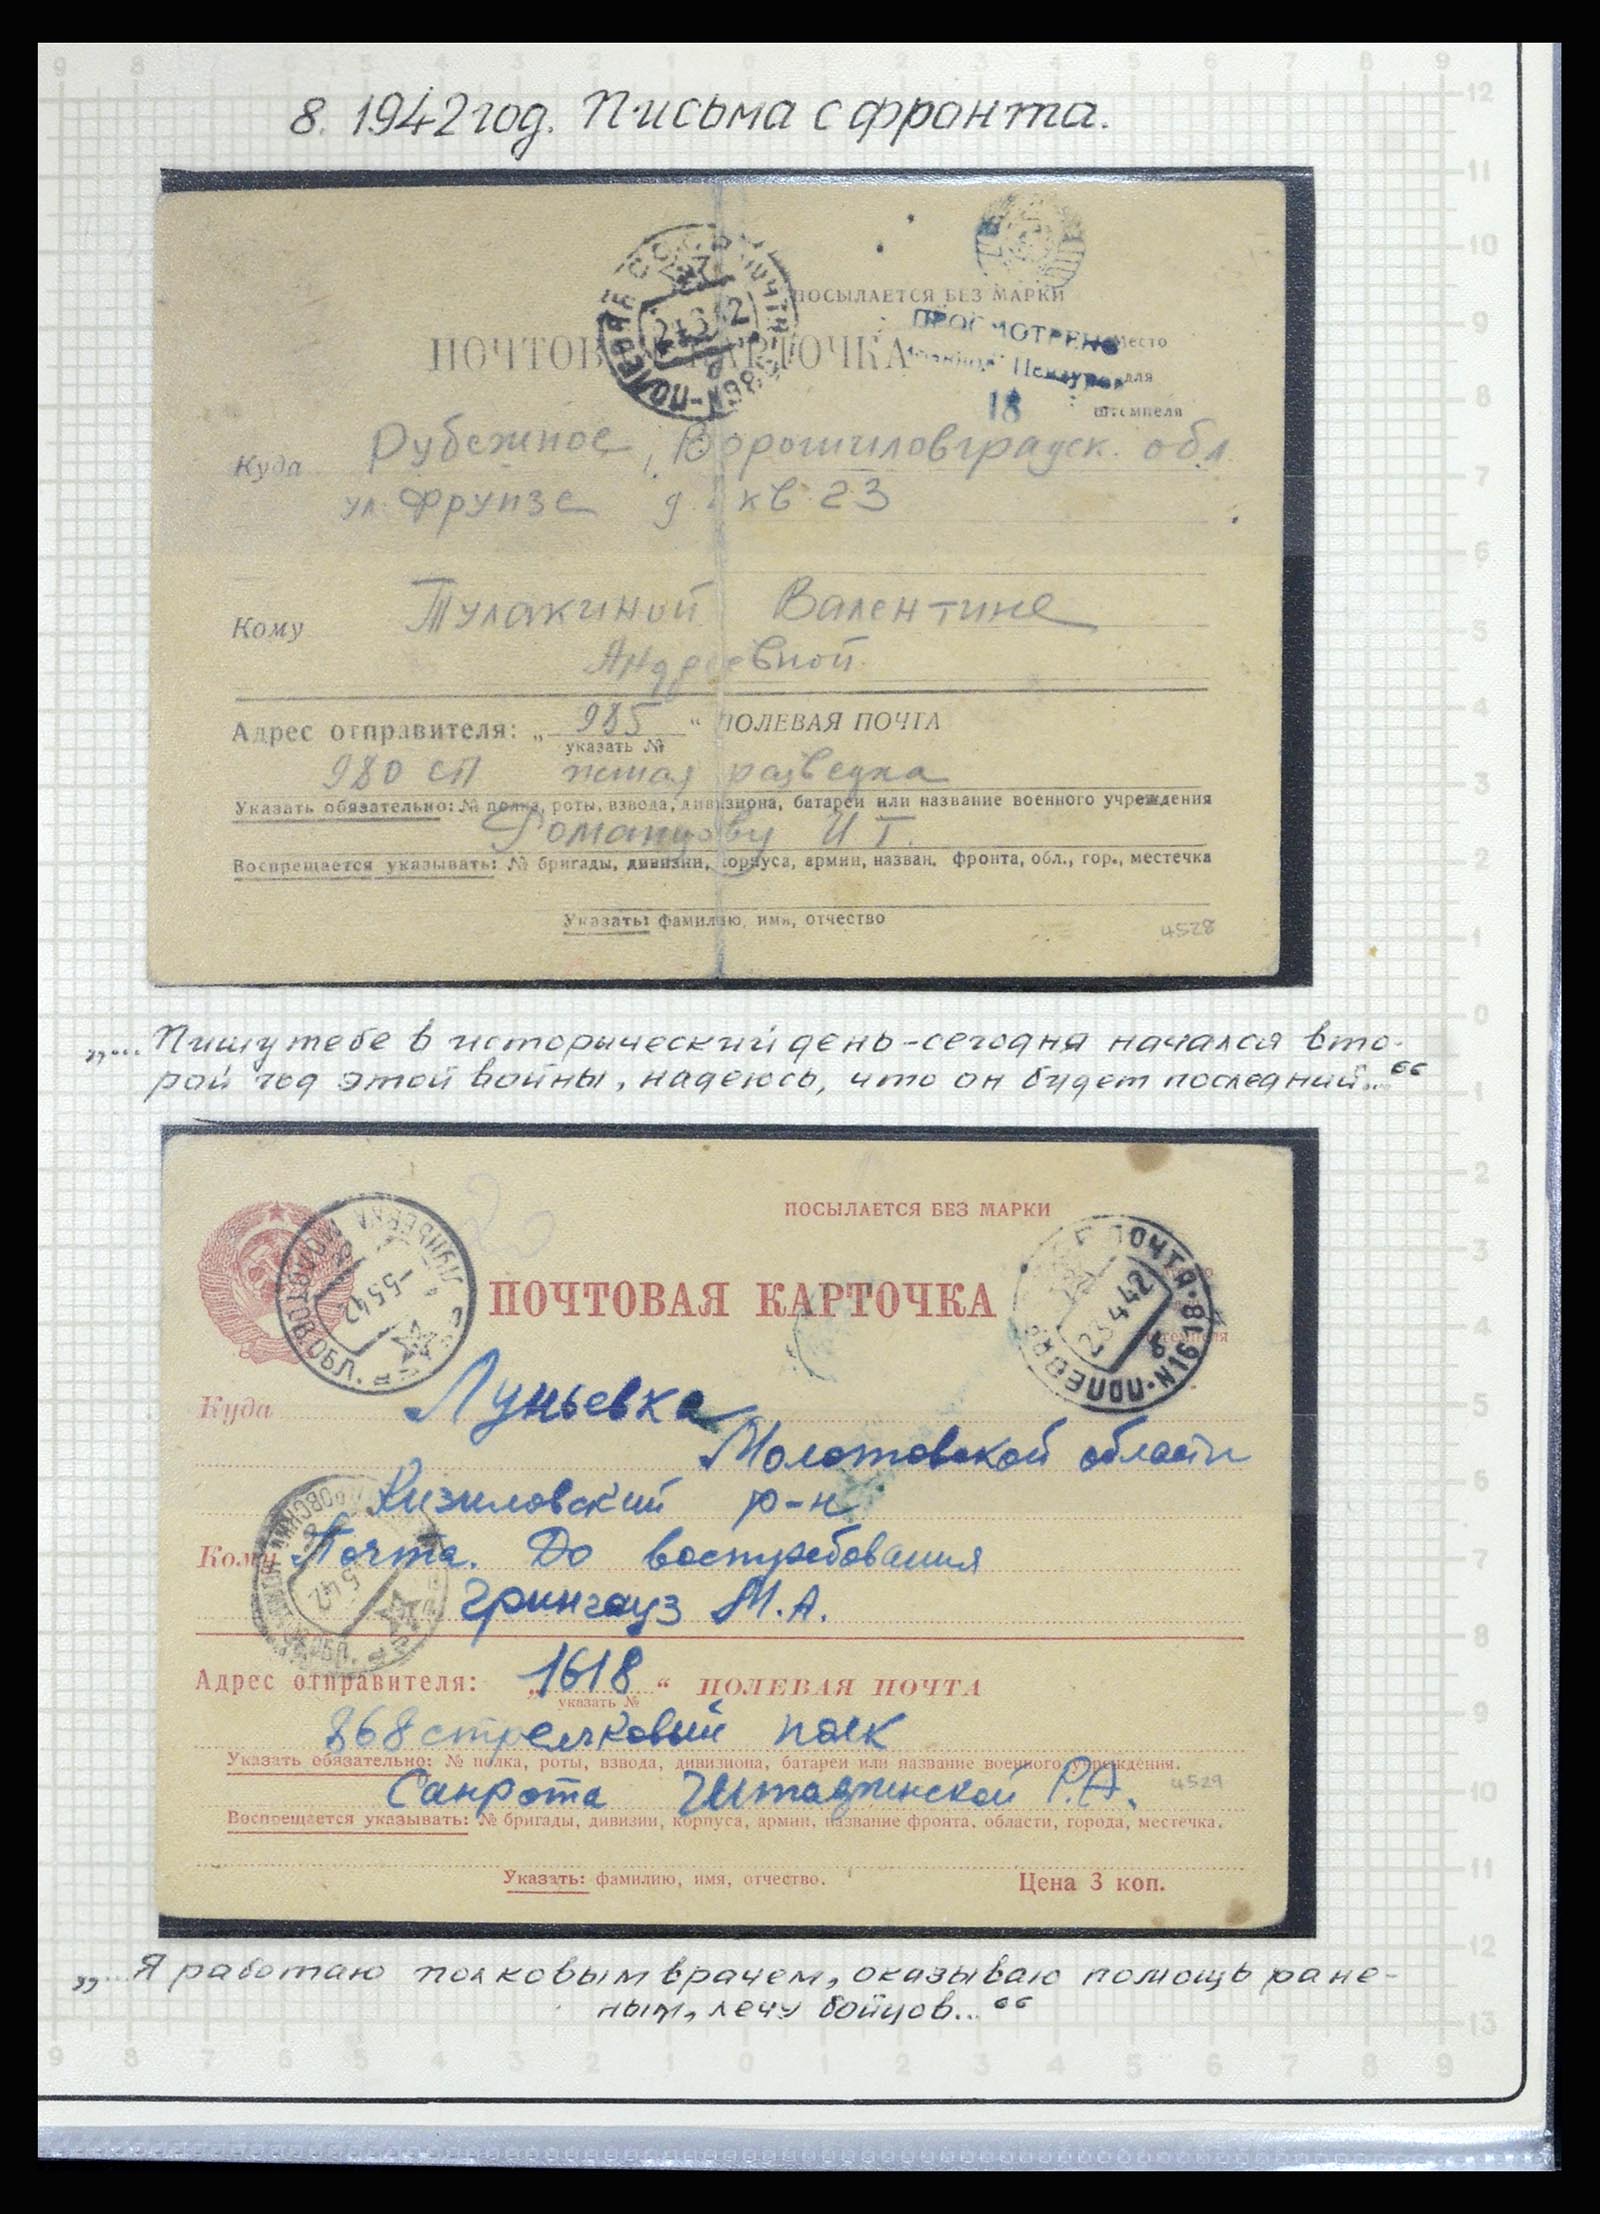 8. 1942 год. Письма с фронта.
ПОСЫЛАЕТСЯ БЕЗ МАРКИ
ПРОСМОТРЕНО
Военной Цензурой
18
Место
для
штемпеля
ПОЧТОВАЯ КАРТОЧКА
Куда Рубежное, Ворошиловградск. обл.
ул. Фрунзе д. кв 23
Кому Тулакиной Валентине
Андреевной
Адрес отправителя: „ 985 “ ПОЛЕВАЯ ПОЧТА
указать №
980 СП пешая разведка
Указать обязательно: № полка, роты, взвода, дивизиона, батареи или название военного учреждения
Романцову И Г.
Воспрещается указывать: № бригады, дивизии, корпуса, армии, назван. фронта, обл., гор., местечка
Указать: фамилию, имя, отчество
4528
„... Пишу тебе в исторический день - сегодня начался вто-
рой год этой войны, надеюсь, что он будет последний...“
ПОСЫЛАЕТСЯ БЕЗ МАРКИ
ПОЧТОВАЯ КАРТОЧКА
5 5 42
ПОЛЕВАЯ ПОЧТА • N1618
23 4 42
Куда Луньевка
Молотовской области
Кизиловский р-н
Кому Почта. До востребования
Грингауз М.А.
Адрес отправителя: „ 1618 “ ПОЛЕВАЯ ПОЧТА
указать №
868 стрелковый полк
Указать обязательно: № полка, роты, взвода, дивизиона, батареи или название военного учреждения.
Санрота Р.А.
4529
Воспрещается указывать: № бригады, дивизии, корпуса, армии, название фронта, области, города, местечка.
Указать: фамилию, имя, отчество.
Цена 3 коп.
„... Я работаю полковым врачем, оказываю помощь ране-
ным, лечу бойцов...“